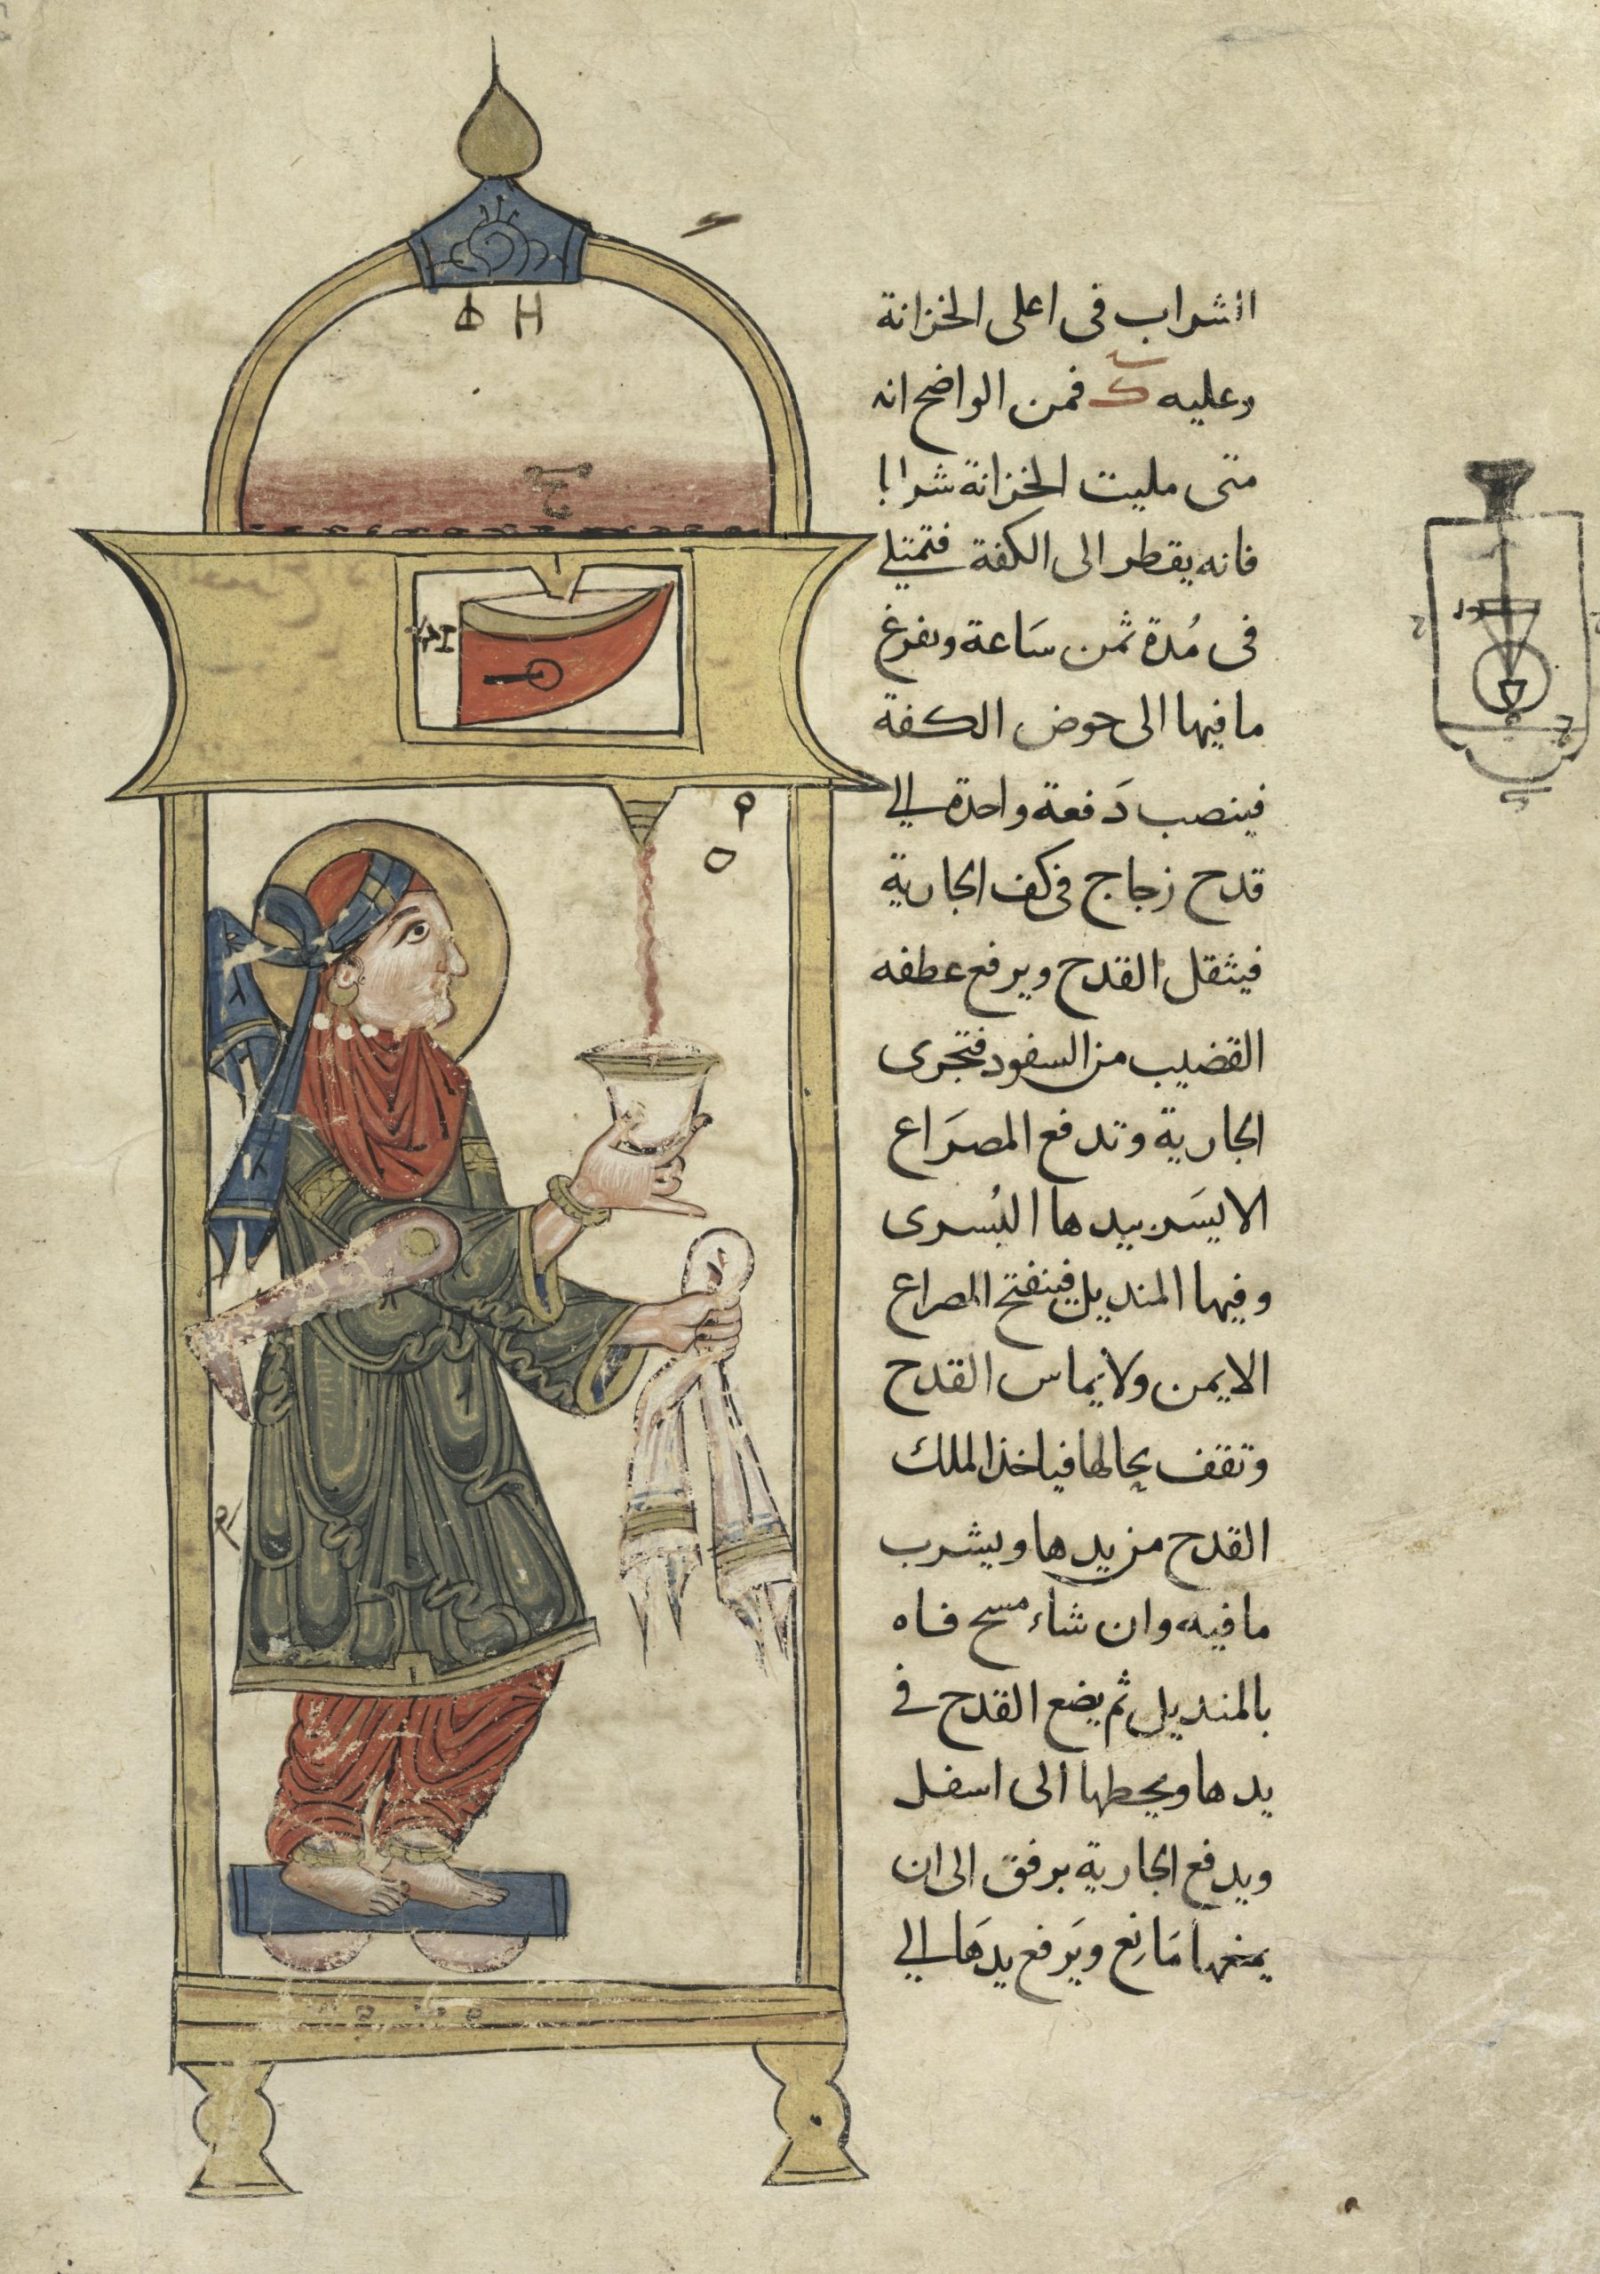 الشراب فى اعلى الخزانة
وعليه ک فمن الواضح انه
متى مليت الخزانة شرابا
فانه يقطر الى الكفة فتمتلي
فى مُدة ثمن سَاعة ويفرغ
ما فيها الى حوض الكفة
فينصب دَفعة واحدة الي
قدح زجاج في كف الجارية
فيثقل القدح ويرفع عطفه
القضيب من السفود فتجرى
الجارية وتدفع المصرَاع
الايسَر بيدها اليُسرى
وفيها المنديل فينفتح المصراع
الايمن ولا يماس القدح
وتقف بحالها فياخذ الملك
القدح من يدها ويشرب
ما فيه وان شاء مسح فاه
بالمنديل ثم يضع القدح في
يدها ويحطها الى اسفل
ويدفع الجارية برفق الى ان
يمنعها مَانع ويَرفع يدهَا الي